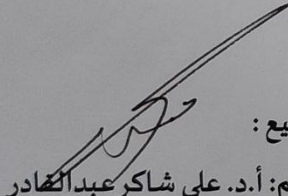 يع :
م: أ.د. علي شاكر عبدالقادر